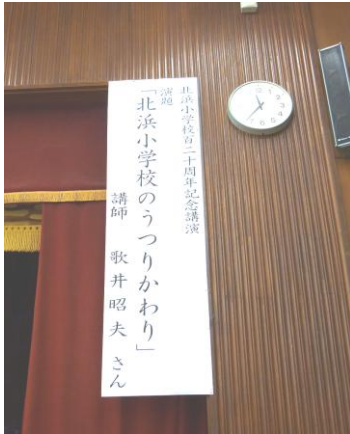 北浜小学校百二十周年記念講演
演題
「北浜小学校のうつりかわり」
講師 歌井昭夫さん